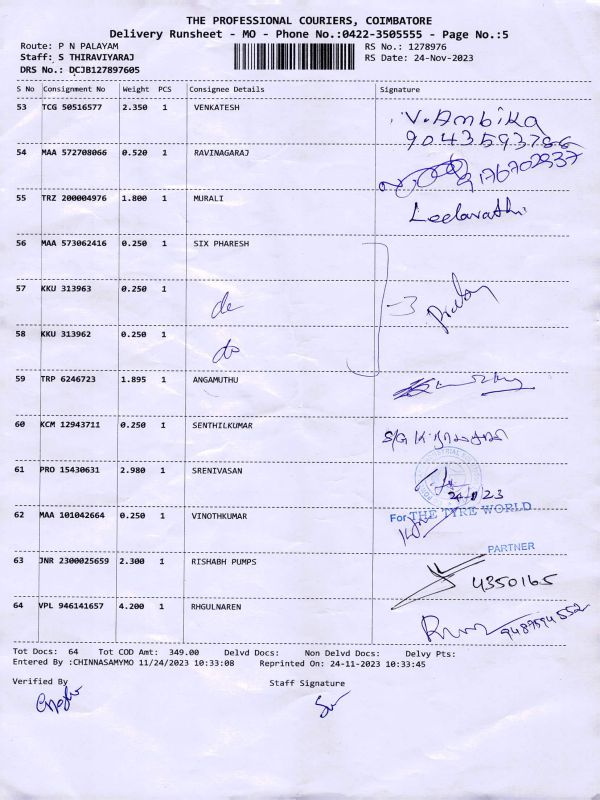 THE PROFESSIONAL COURIERS, COIMBATORE
Delivery Runsheet - MO - Phone No.:0422-3505555 - Page No.:5
Route: P N PALAYAM RS No.: 1278976
Staff: S THIRAVIYARAJ RS Date: 24-Nov-2023
DRS No.: DCJB127897605
S No Consignment No Weight PCS Consignee Details Signature
53 TCG 50516577 2.350 1 VENKATESH V. Ambika
9043593766
54 MAA 572708066 0.520 1 RAVINAGARAJ 9176702337
55 TRZ 200004976 1.800 1 MURALI Leelavathi
56 MAA 573062416 0.250 1 SIX PHARESH
57 KKU 313963 0.250 1 do - 3
58 KKU 313962 0.250 1 do
59 TRP 6246723 1.895 1 ANGAMUTHU
60 KCM 12943711 0.250 1 SENTHILKUMAR S/G K.
61 PRO 15430631 2.980 1 SRENIVASAN 24/11/23
62 MAA 101042664 0.250 1 VINOTHKUMAR For THE TYRE WORLD
PARTNER
63 JNR 2300025659 2.300 1 RISHABH PUMPS 4350165
64 VPL 946141657 4.200 1 RHGULNAREN 9487594552
Tot Docs: 64 Tot COD Amt: 349.00 Delvd Docs: Non Delvd Docs: Delvy Pts:
Entered By :CHINNASAMYMO 11/24/2023 10:33:08 Reprinted On: 24-11-2023 10:33:45
Verified By Staff Signature